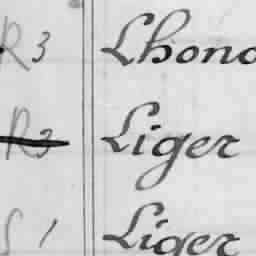 R 3 Lhono
R3 Liger
S 1 Liger